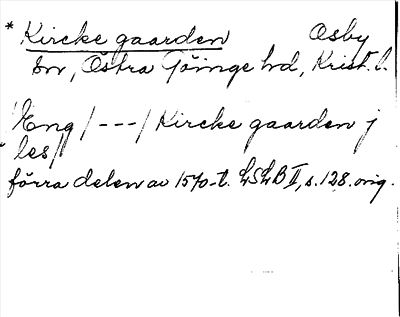 * Kircke gaarden Osby
sn, Östra Göinge hd, Krist. l.
Eng / --- / Kircke gaarden j
les/
förra delen av 1570-t. LSLB II, s. 128. orig.